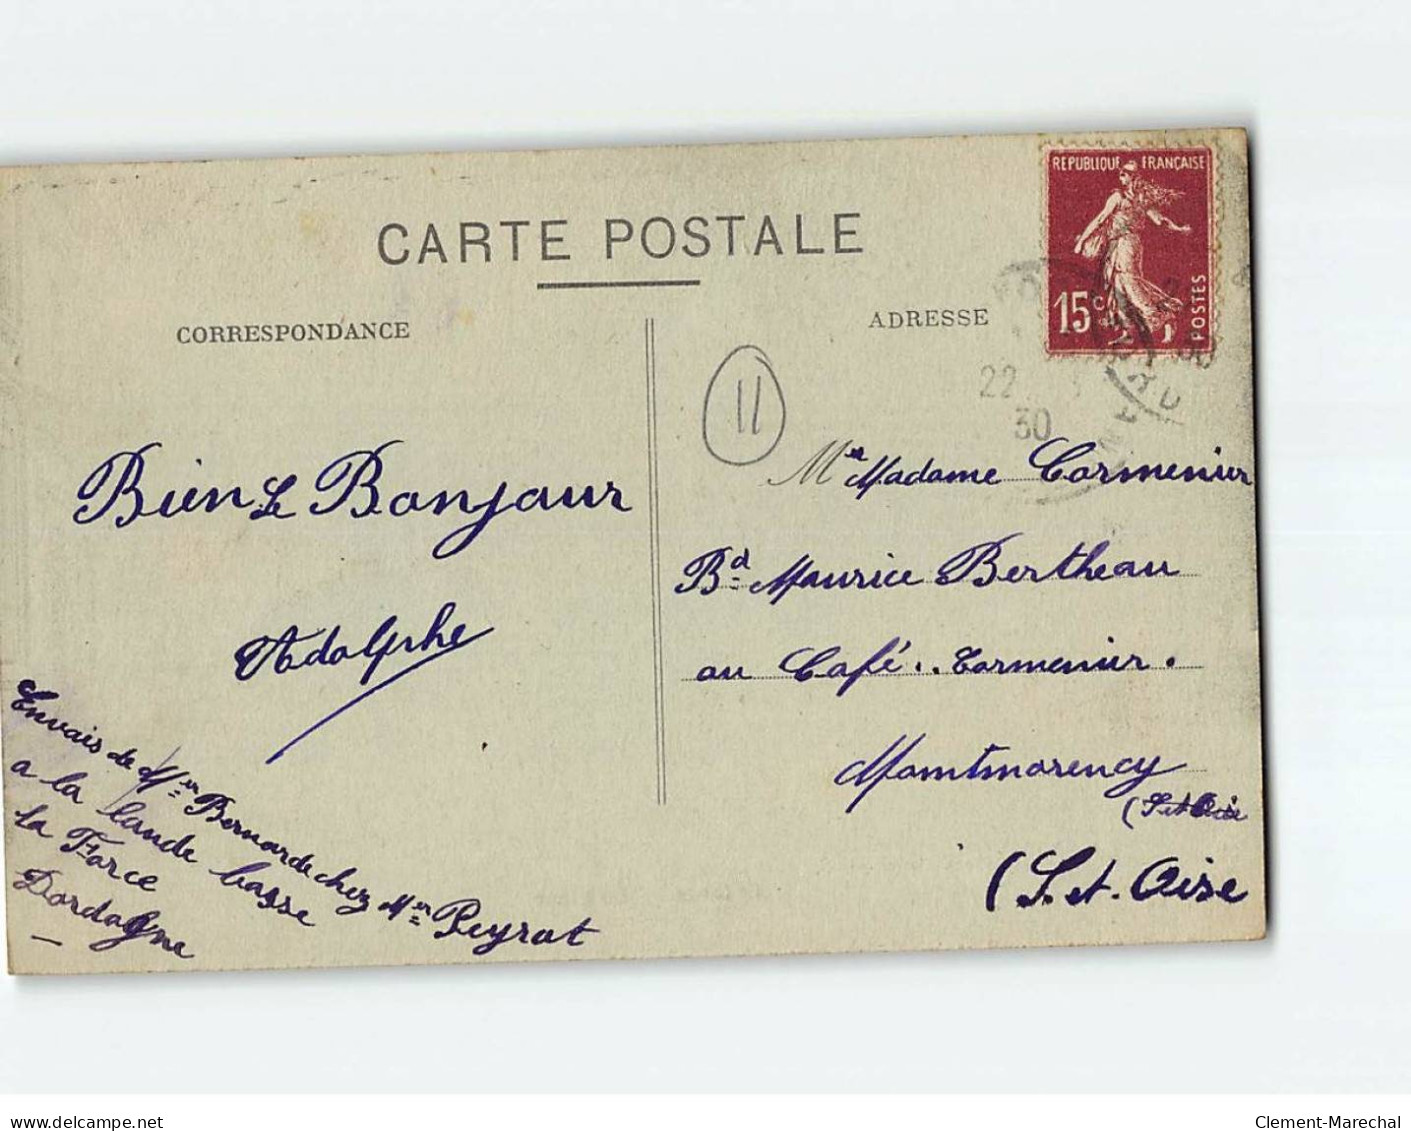 CARTE POSTALE
CORRESPONDANCE
Bien Le Bonjour
Adolphe
Envois de Mer Bernarde chez Mer Peyrat
a la Lande basse
La Force
Dordogne
REPUBLIQUE FRANÇAISE
15c
POSTES
ADRESSE
22
30
11
Me Madame Cormenier
Bd Maurice Bertheau
au Café.. Cormenier.
Montmorency
(S et Oise
(S. et. Oise
delcampe.net
Clement-Marechal